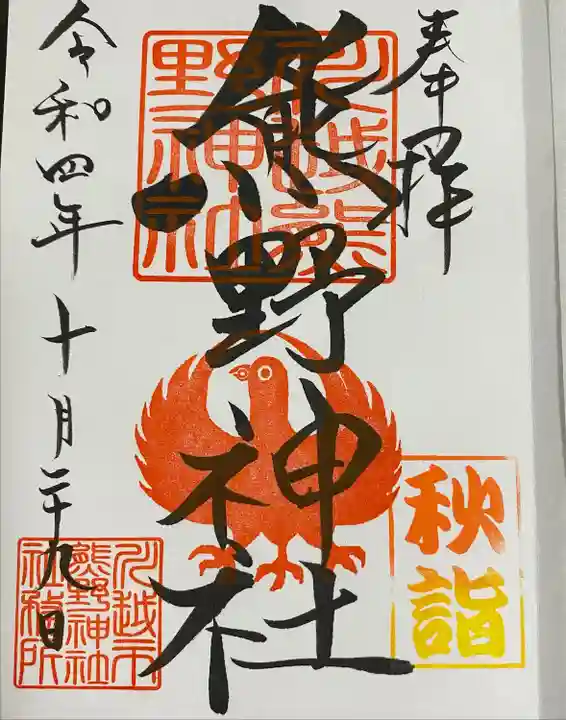 奉拝
川越熊
野神社
熊野神社
秋詣
令和四年十月二十九日
川越市
熊野神社
社務所